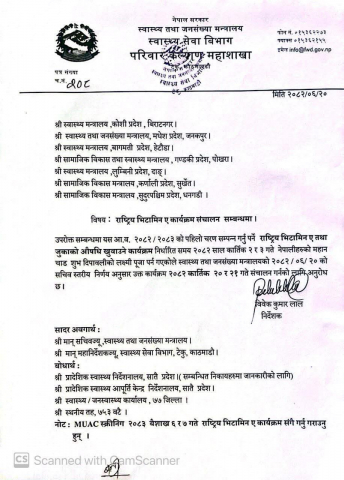 नेपाल सरकार
स्वास्थ्य तथा जनसंख्या मन्त्रालय
स्वास्थ्य सेवा विभाग
परिवार कल्याण महाशाखा
पत्र संख्या
च.नं. २०८
इमेलः info@fwd.gov.np
मिति २०८२/०६/२०
श्री स्वास्थ्य मन्त्रालय ,कोशी प्रदेश , बिराटनगर।
श्री स्वास्थ्य तथा जनसंख्या मन्त्रालय, मधेश प्रदेश, जनकपुर।
श्री स्वास्थ्य मन्त्रालय, बागमती प्रदेश, हेटौडा।
श्री सामाजिक विकास तथा स्वास्थ्य मन्त्रालय , गण्डकी प्रदेश, पोखरा।
श्री स्वास्थ्य मन्त्रालय, लुम्बिनी प्रदेश, दाङ्ग।
श्री सामाजिक विकास मन्त्रालय, कर्णाली प्रदेश, सुर्खेत।
श्री सामाजिक विकास मन्त्रालय, सुदुरपश्चिम प्रदेश, धनगढी ।
विषय : राष्ट्रिय भिटामिन ए कार्यक्रम संचालन सम्बन्धमा।
उपरोक्त सम्बन्धमा यस आ.व. २०८२/२०८३ को पहिलो चरण सम्पन्न गर्नु पर्ने राष्ट्रिय भिटामिन ए तथा
जुकाको औषधि खुवाउने कार्यक्रम निर्धारित समय २०८२ साल कार्तिक २ र ३ गते नेपालीहरुको महान
चाड शुभ दिपावलीको लक्ष्मी पूजा पर्न गएकोले स्वास्थ्य तथा जनसंख्या मन्त्रालयको २०८२/०६/२० को
सचिव स्तरीय निर्णय अनुसार उक्त कार्यक्रम २०८२ कार्तिक २० र २१ गते संचालन गर्नको लागि अनुरोध
छ।
विवेक कुमार लाल
निर्देशक
सादर अवगार्थ :
श्री मान् सचिवज्यू ,स्वास्थ्य तथा जनसंख्या मन्त्रालय।
श्री मान् महानिर्देशकज्यू, स्वास्थ्य सेवा विभाग, टेकु, काठमाडौ।
बोधार्थ :
श्री प्रादेशिक स्वास्थ्य निर्देशनालय, सातै प्रदेश।( सम्बन्धित निकायहरुमा जानकारीको लागि)
श्री प्रादेशिक स्वास्थ्य आपूर्ति केन्द्र निर्देशनालय, सातै प्रदेश।
श्री स्वास्थ्य / जनस्वास्थ्य कार्यालय , ७७ जिल्ला ।
श्री स्थनीय तह, ७५३ वटै ।
नोट : MUAC स्क्रीनिंग २०८३ बैशाख ६ र ७ गते राष्ट्रिय भिटामिन ए कार्यक्रम संगै गर्नु गराउनु
हुन् ।
CS Scanned with CamScanner